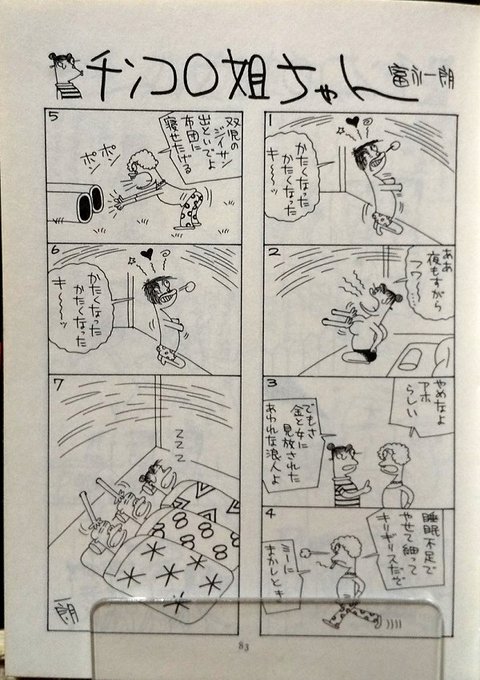 チンコロ姐ちゃん
富永一朗
1
かたくなった
かたくなった
キ〜〜ッ
2
ああ
夜もすがら
フワ〜…
3
やめなよ
アホ
らしい
でもさ
金と女に
見放された
あわれな浪人よ
4
睡眠不足で
やせて細って
キリギリスだで
ミーに
まかしとき
5
双児の
ジイサン
出といでよ
布団に
寝せたげる
ポン
ポン
6
かたくなった
かたくなった
キ〜〜ッ
7
ZZZ
一朗
83